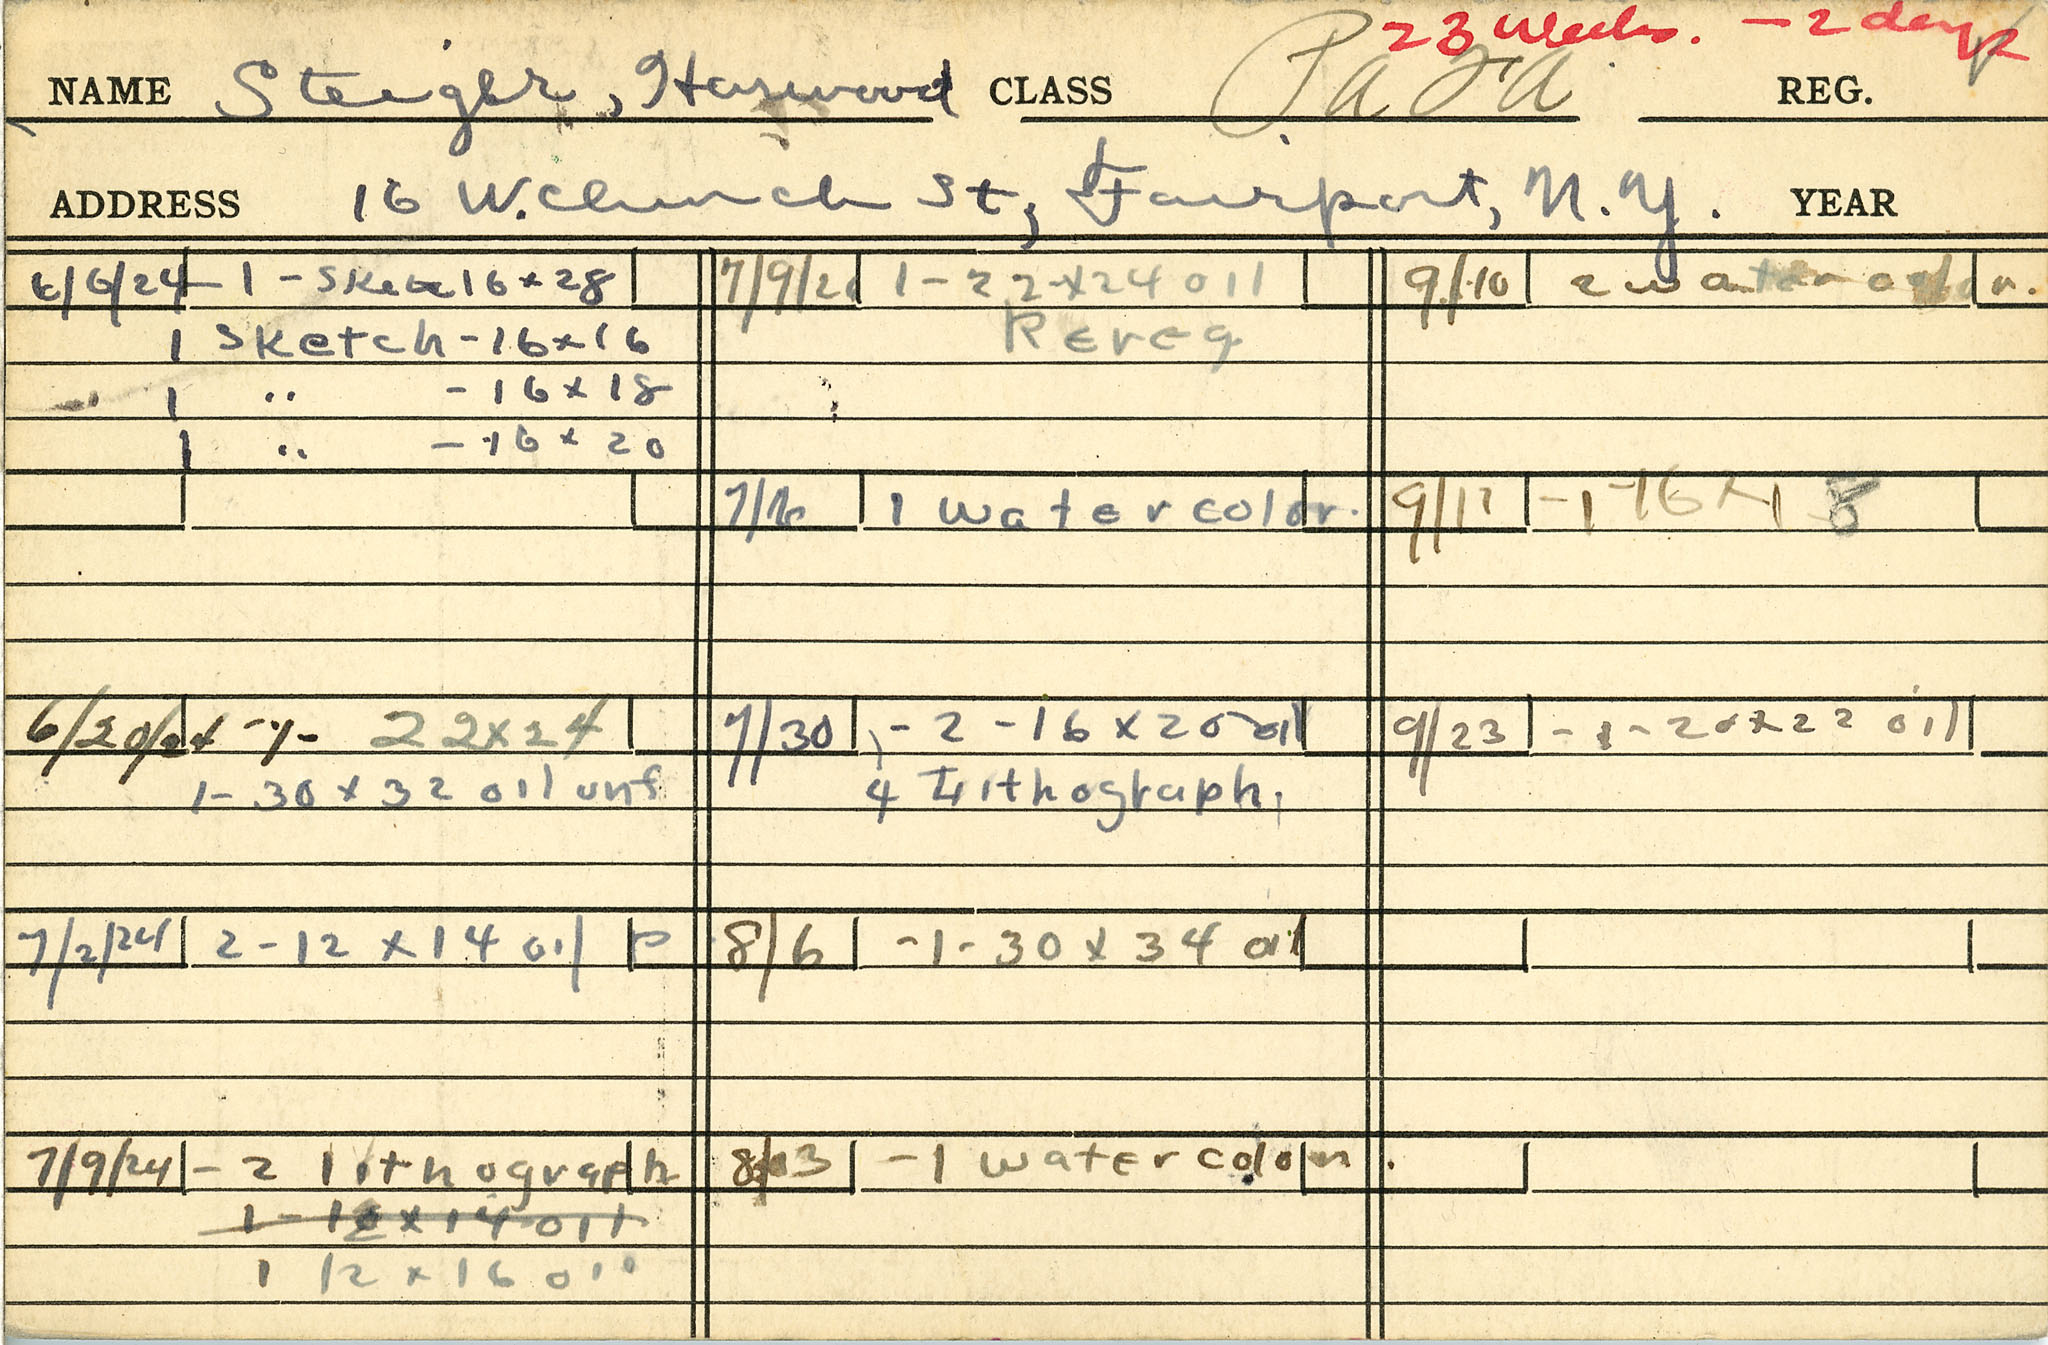 23 weeks. - 2 days
NAME Steiger, Harwood CLASS Pa Fa REG.
ADDRESS 16 W. Church St, Fairport, N.Y. YEAR
6/6/24 - 1 - Sketc 16 x 28
1 Sketch - 16 x 16
1 " - 16 x 18
1 " - 16 x 20
6/20/24 - 1 - 22 x 24
1 - 30 x 32 oil unf
7/2/24 2 - 12 x 14 oil P
7/9/24 - 2 lithograph
1 - 12 x 14 oil
1 12 x 16 oil
7/9/24 1 - 22 x 24 oil
Rereg
7/16 1 Watercolor.
7/30 - 2 - 16 x 20 oil
4 Lithograph.
8/6 - 1 - 30 x 34 oil
8/13 - 1 watercolor.
9/10 2 watercolor.
9/17 - 1 - 16 x 18
9/23 - 1 - 20 x 22 oil